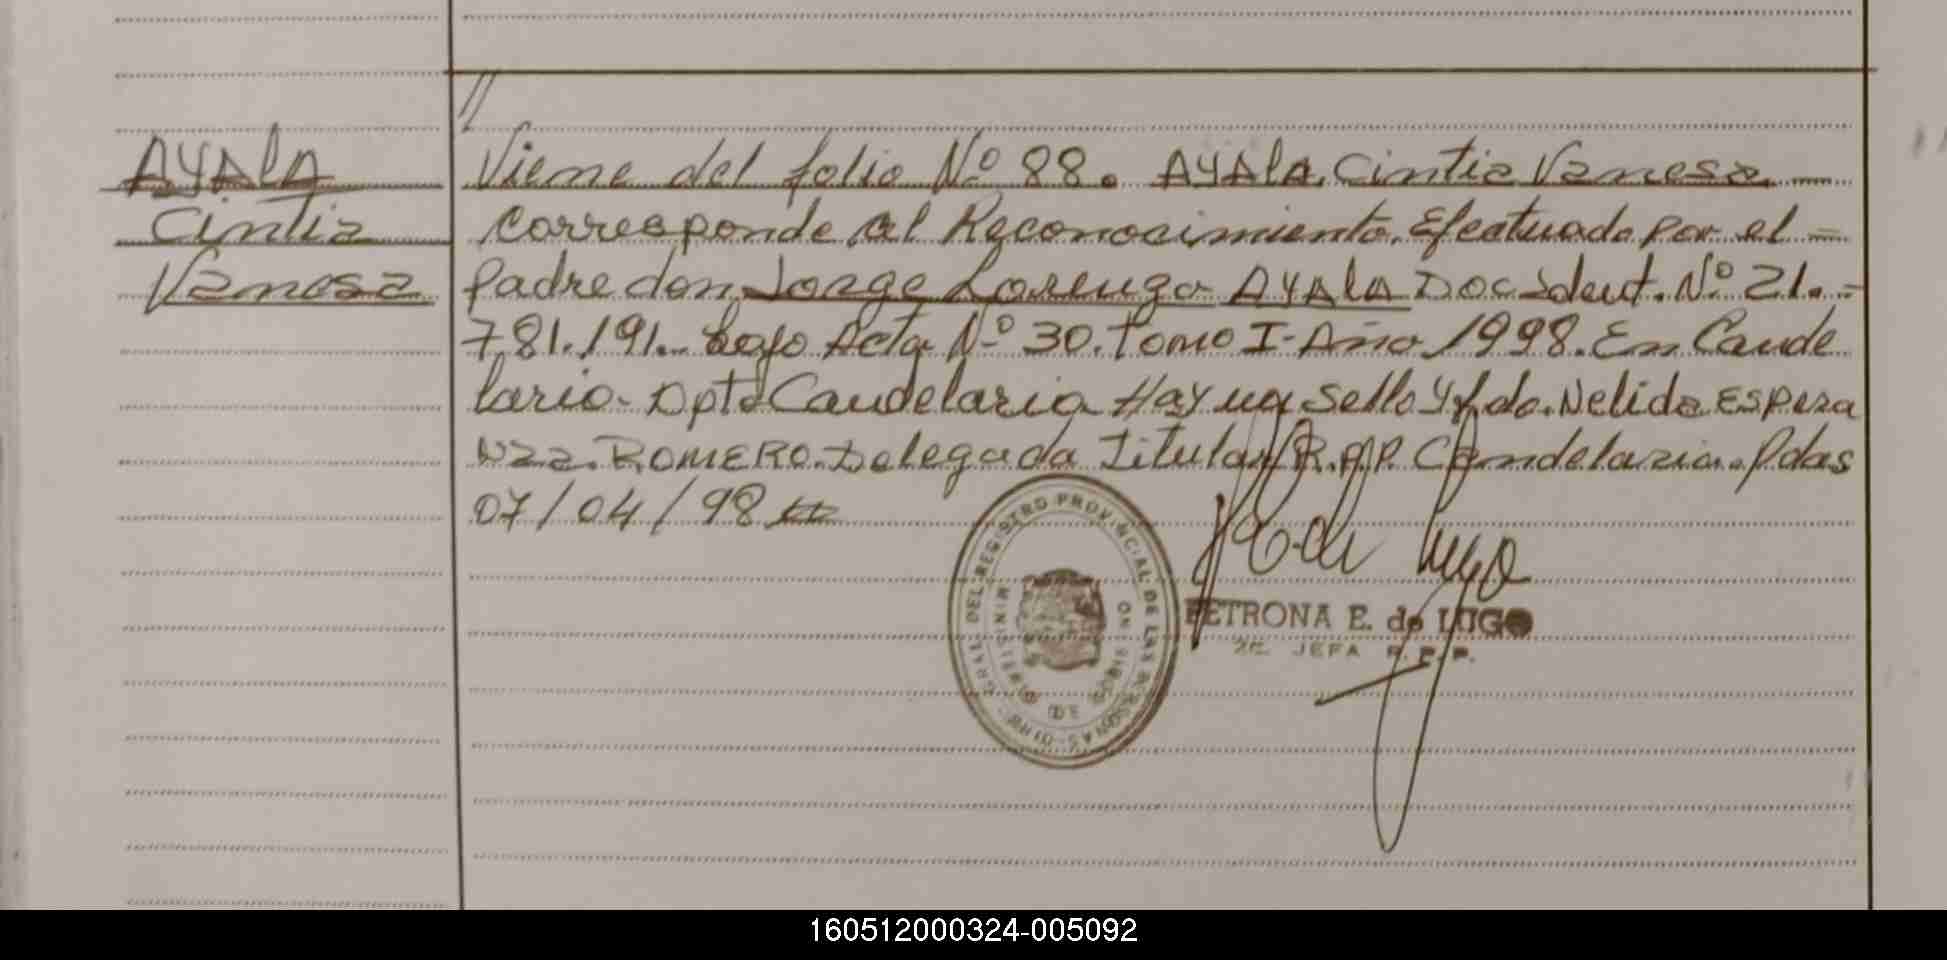 //
AYALA
Cintia
Vanesa
Viene del folio Nº 88. AYALA, Cintia Vanesa. —
Corresponde al Reconocimiento. Efectuado por el =
padre don, Jorge Lorenzo AYALA Doc. Ident. Nº 21.=
781.191. bajo Acta Nº 30. Tomo I- Año 1998. En Cande
laria- Dpto Candelaria Hay un sello y fdo. Nelida Espera
nza. ROMERO. Delegada Titular R.P.P. Candelaria. Pdas
07/04/98
GRAL. DEL REGISTRO PROVINCIAL DE LAS PERSONAS
MINISTERIO DE GOBIERNO
PETRONA E. de LUGO
2º JEFA R.P.P.
160512000324-005092